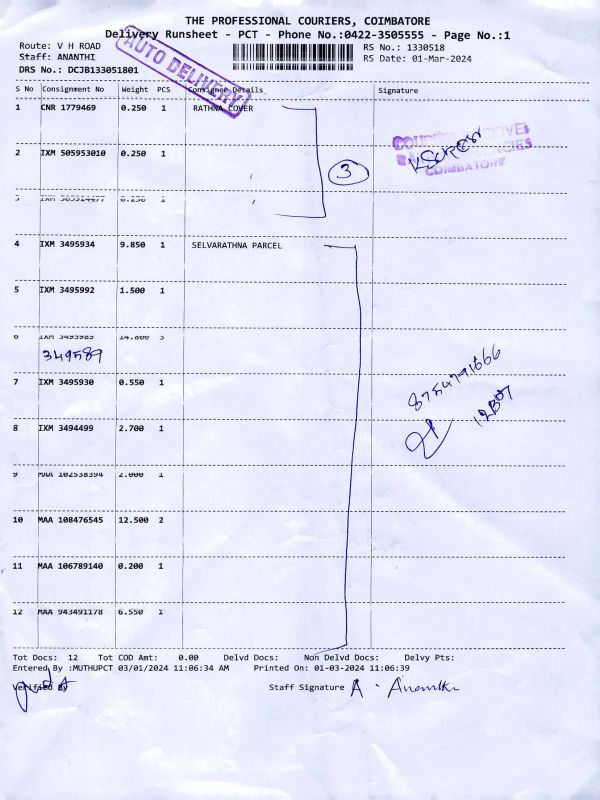 THE PROFESSIONAL COURIERS, COIMBATORE
Delivery Runsheet - PCT - Phone No.:0422-3505555 - Page No.:1
Route: V H ROAD
RS No.: 1330518
Staff: ANANTHI
RS Date: 01-Mar-2024
DRS No.: DCJB133051801
AUTO DELIVERY
S No Consignment No Weight PCS Consignee Details Signature
1 CNR 1779469 0.250 1 RATHNA COVER
COIMBATORE
2 IXM 505953010 0.250 1
3
3 IXM 1
4 IXM 3495934 9.850 1 SELVARATHNA PARCEL
5 IXM 3495992 1.500 1
6 IXM 3495989 14.800
349589
7 IXM 3495930 0.550 1
8 IXM 3494499 2.700 1
9 MAA 102538394 2.000 1
10 MAA 108476545 12.500 2
11 MAA 106789140 0.200 1
12 MAA 943491178 6.550 1
Tot Docs: 12 Tot COD Amt: 0.00 Delvd Docs: Non Delvd Docs: Delvy Pts:
Entered By :MUTHUPCT 03/01/2024 11:06:34 AM Printed On: 01-03-2024 11:06:39
Verified By
Staff Signature A. Ananthi